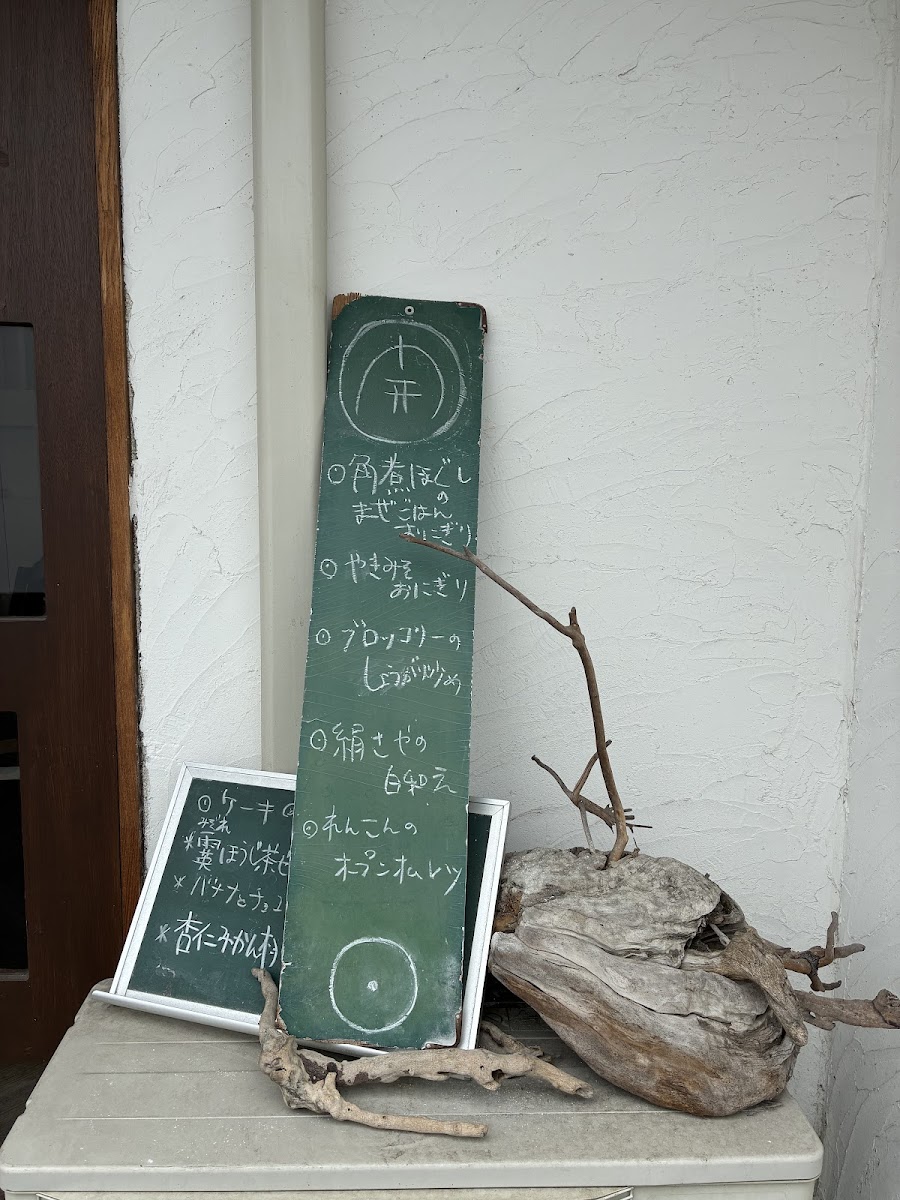 ◎角煮ほぐし
の
まぜごはん
おにぎり
◎やきみそ
おにぎり
◎ブロッコリーの
しょうが炒め
◎絹さやの
白和え
◎れんこんの
オープンオムレツ
◎ケーキ
みぞれ
*ほうじ茶ゼ
*バナナとチョコ
*杏仁みかん